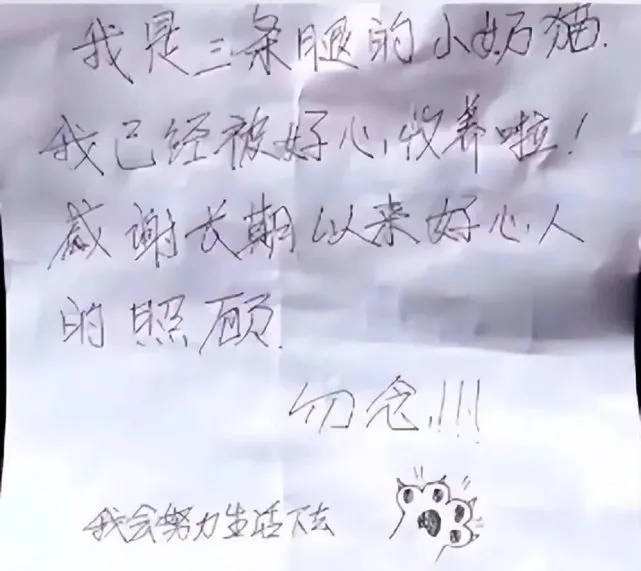 我是三条腿的小奶猫.
我已经被好心收养啦!
感谢长期以来好心人
的照顾.
勿念!!!
我会努力生活下去